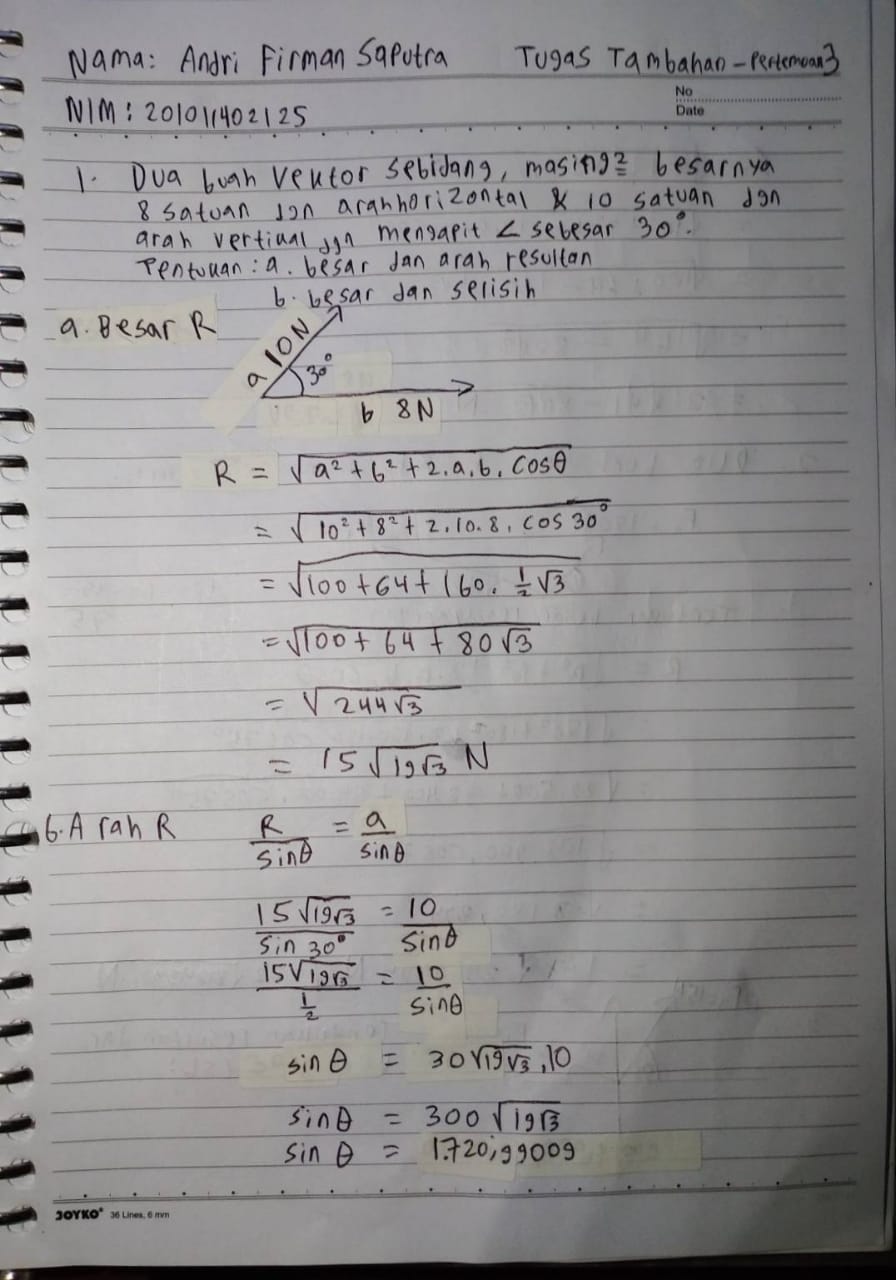 Nama: Andri Firman Saputra Tugas Tambahan - Pertemuan 3
No
NIM: 201011402125
Date
1. Dua buah Vektor sebidang, masing2 besarnya
8 satuan dgn arah horizontal & 10 satuan dgn
arah vertikal dgn mengapit ∠ sebesar 30°.
Tentukan: a. besar dan arah resultan
b. besar dan selisih
a. Besar R
a 10 N
30°
b 8 N
R = √a² + b² + 2.a.b. cos θ
= √10² + 8² + 2.10.8. cos 30°
= √100 + 64 + 160. 1/2 √3
= √100 + 64 + 80 √3
= √244√3
= 15 √19√3 N
b. Arah R R/sin θ = a/sin θ
15 √19√3/sin 30° = 10/sin θ
15 √19√3/(1/2) = 10/sin θ
sin θ = 30 √19√3 , 10
sin θ = 300 √19√3
sin θ = 1.720,99009
JOYKO® 36 Lines, 6 mm